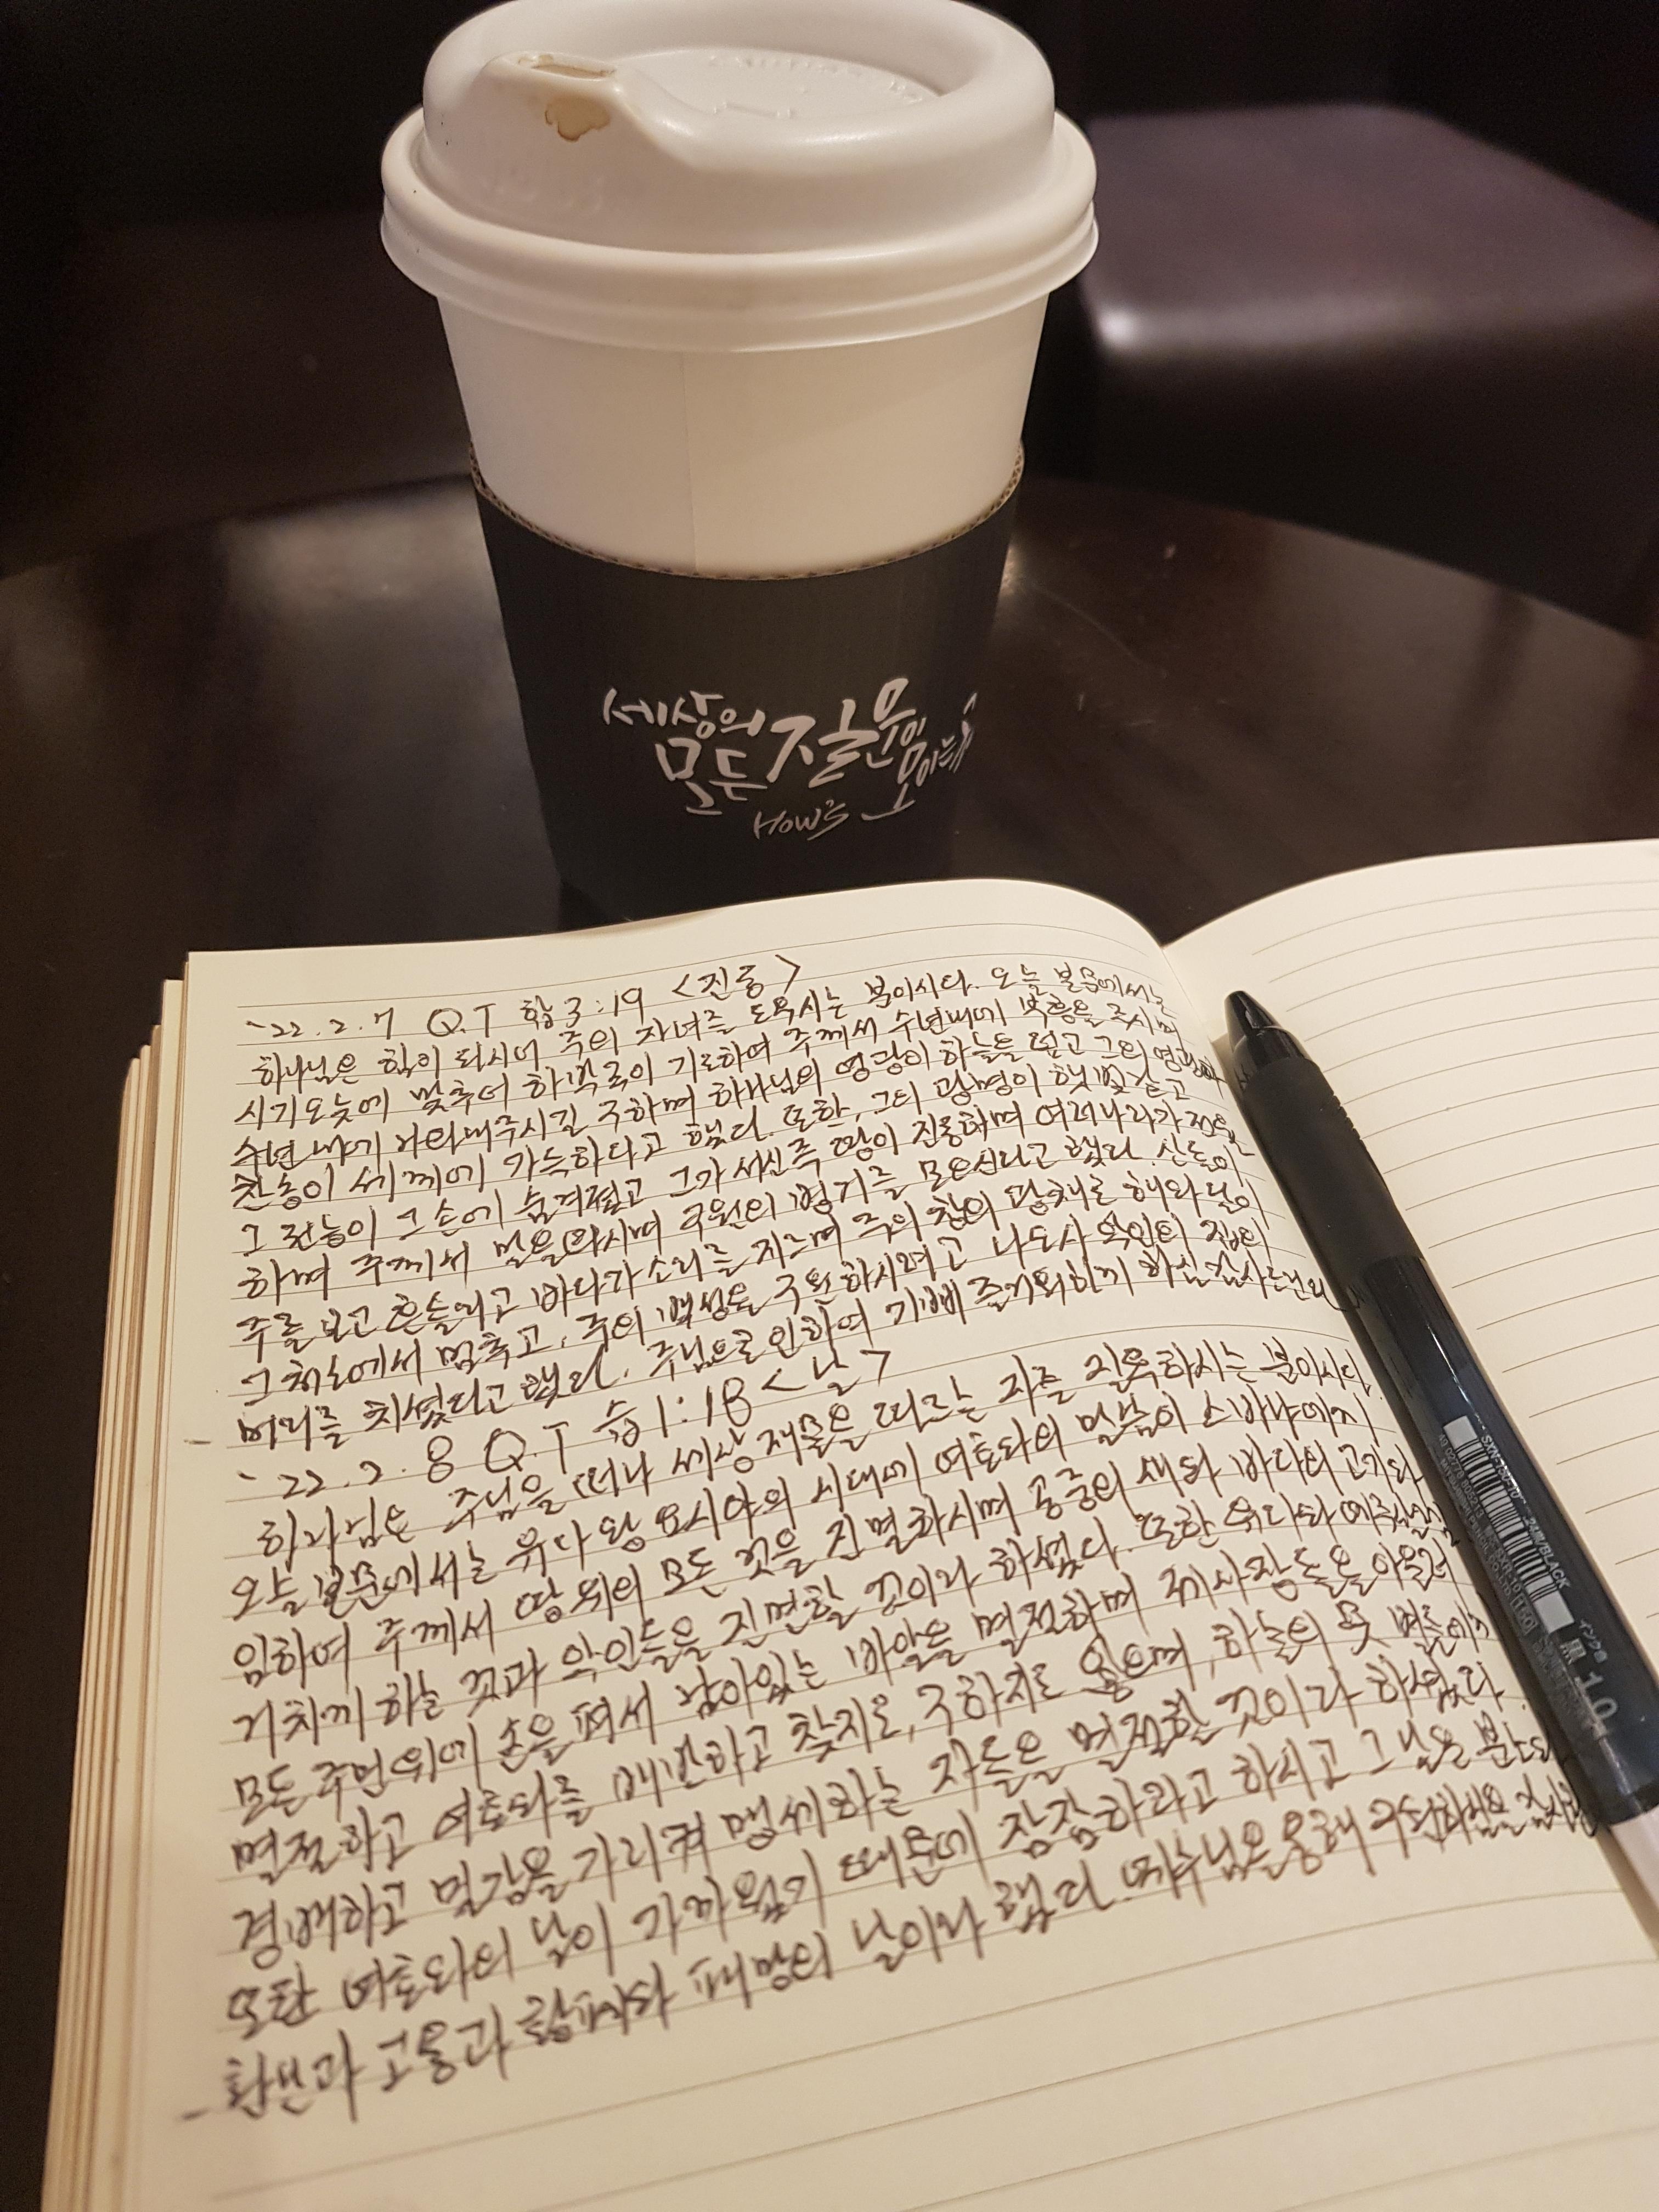 세상의
모든 질문이
모이는
HOW's
'22.2.7 Q.T 합3:19 <진동>
하나님은 힘이 되시어 주의 자녀를 도우시는 분이시다. 오늘 본문에서는
시기오놋에 맞추어 하박국이 기도하여 주께서 수년내에 부흥을 주시며
수년 내에 나타내주시길 구하며 하나님의 영광이 하늘을 덮고 그의
찬송이 세계에 가득하다고 했다. 또한, 그의 광명이 햇빛 같고
그 권능이 그 손에 숨겨졌고 그가 서신즉 땅이 진동하며 여러나라가
하며 주께서 말을 타시며 구원의 병거를 모신다고 했다. 산들이
주를 보고 흔들리고 바다가 소리를 지르며 주의 창의 광채로 해와 달이
그 처소에서 멈추고, 주의 백성을 구원하시려고 나오사 악인의 집의
머리를 치셨다고 했다. 주님으로 인하여 기뻐 즐거워하게 하심
'22.2.8 Q.T 습1:18 <날>
하나님은 주님을 떠나 세상 재물을 따르는 자를 진욕하시는 분이시다.
오늘 본문에서는 유다 왕 요시야의 시대에 여호와의 말씀이 스바냐에게
임하여 주께서 땅 위의 모든 것을 진멸하시며 공중의 새와 바다의 고기와
거치게 하는 것과 악인들을 진멸할 것이라 하셨다. 또한 유다와
모든 주민 위에 손을 펴서 남아있는 바알을 멸절하며 제사장들을 아울러
멸절하고 여호와를 배반하고 찾지도, 구하지도 않으며, 하늘의 뭇 별들에게
경배하고 말감을 가리켜 맹세하는 자들을 멸절할 것이라 하셨다.
또한 여호와의 날이 가까웠기 때문에 잠잠하라고 하시고 그 날은 분노와
환난과 고통과 황폐와 패망의 날이라 했다. 예수님을 통해
SXN-189-10
24MW/BLACK
インク色 黒
1.0